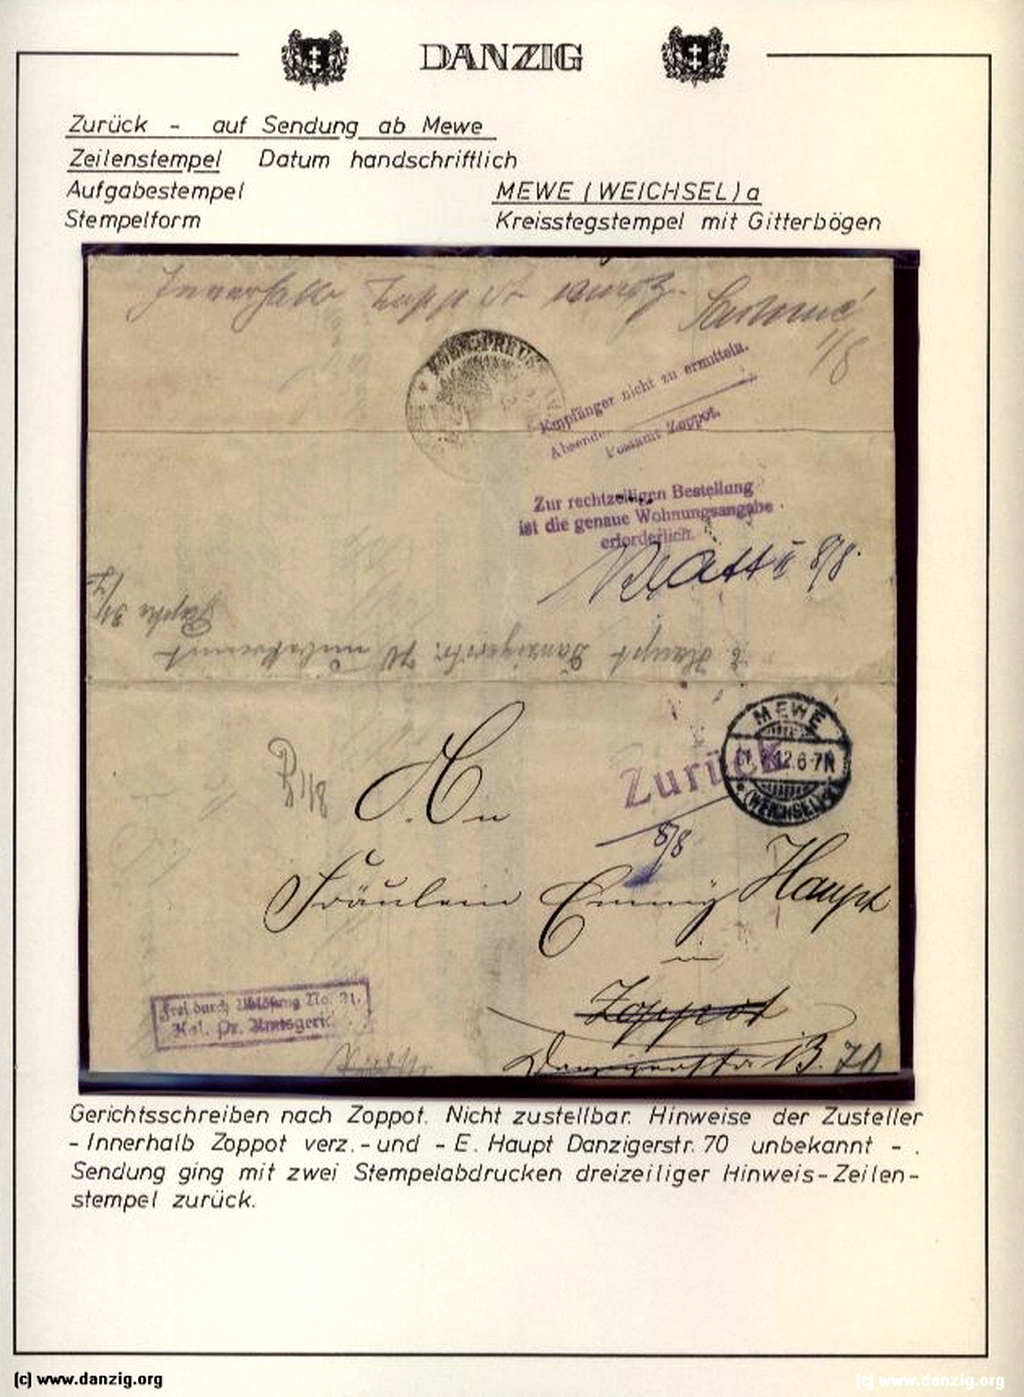 DANZIG
Zurück - auf Sendung ab Mewe
Zeilenstempel Datum handschriftlich
Aufgabestempel MEWE (WEICHSEL) a
Stempelform Kreisstegstempel mit Gitterbögen
Innerhalb Zoppot verz.
1/8
Empfänger nicht zu ermitteln.
Postamt Zoppot.
Zur rechtzeitigen Bestellung
ist die genaue Wohnungsangabe
erforderlich.
8/8.
E. Haupt Danzigerstr. 70 unbekannt
MEWE
12.6-7N
(WEICHSEL)
Zurück
8/8
An
Fräulein Emmy Haupt
in
Zoppot
Danzigerstr 70
Frei durch Ablösung No. 21.
Kgl. Pr. Amtsgericht
Gerichtsschreiben nach Zoppot. Nicht zustellbar. Hinweise der Zusteller
- Innerhalb Zoppot verz. - und - E. Haupt Danzigerstr. 70 unbekannt - .
Sendung ging mit zwei Stempelabdrucken dreizeiliger Hinweis-Zeilen-
stempel zurück.
(c) www.danzig.org (c) www.danzig.org